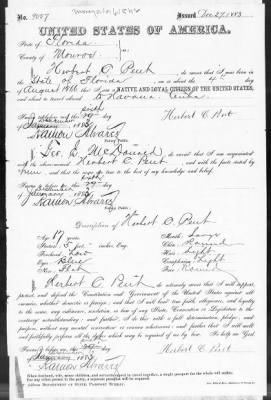 No. 9087 Issued Dec 27, 1883
UNITED STATES OF AMERICA.
State of Florida
County of Monroe
I, Herbert O. Peut, do swear that I was born in
the State of Florida, on or about the
of August 1866 that I am a NATIVE AND LOYAL CITIZEN OF THE UNITED STATES,
and about to travel abroad to Havana Cuba
Herbert O. Peut
Sworn to before me, this day
Ramon Alvarez
Notary Public.
I, Geo. E. McDonald, do swear that I am acquainted
with the above-named Herbert O. Peut, and with the facts stated by
him, and that the same are true to the best of my knowledge and belief.
Sworn to before me, this day
Ramon Alvarez
Notary Public.
Description of Herbert O. Peut
Age: 17 years. Mouth: Large
Stature: 5 feet inches, Eng. Chin: Round
Forehead: Low Hair: Light
Eyes: Blue Complexion: Light
Nose: Flat Face: Round
I, Herbert O. Peut, do solemnly swear that I will support,
protect, and defend the Constitution and Government of the United States against all
enemies, whether domestic or foreign; and that I will bear true faith, allegiance, and loyalty
to the same, any ordinance, resolution, or law of any State, Convention, or Legislature to the
contrary notwithstanding; and further, that I do this with a full determination, pledge, and
purpose, without any mental reservation or evasion whatsoever; and further, that I will well
and faithfully perform all the duties which may be required of me by law. So help me God.
Herbert O. Peut
Sworn to before me, this day
Ramon Alvarez
Notary Public.